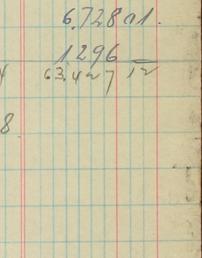 6.728 a1.
1296
63.427 12
8